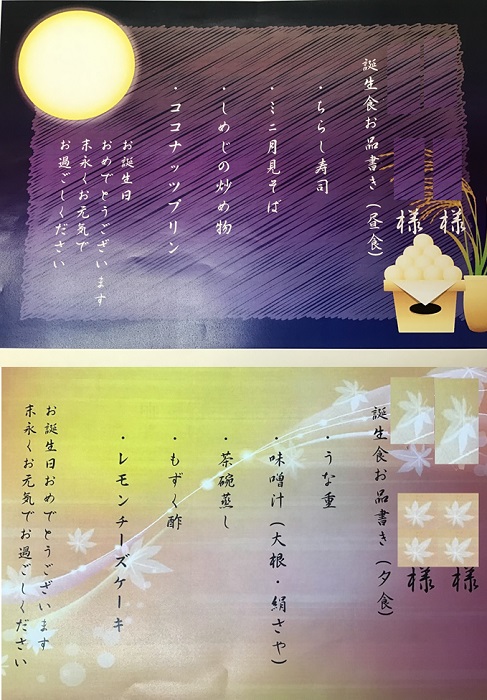 様
様
誕生食お品書き（昼食）
・ちらし寿司
・ミニ月見そば
・しめじの炒め物
・ココナッツプリン
お誕生日
おめでとうございます
末永くお元気で
お過ごしください
様
様
誕生食お品書き（夕食）
・うな重
・味噌汁（大根・絹さや）
・茶碗蒸し
・もずく酢
・レモンチーズケーキ
お誕生日おめでとうございます
末永くお元気でお過ごしください